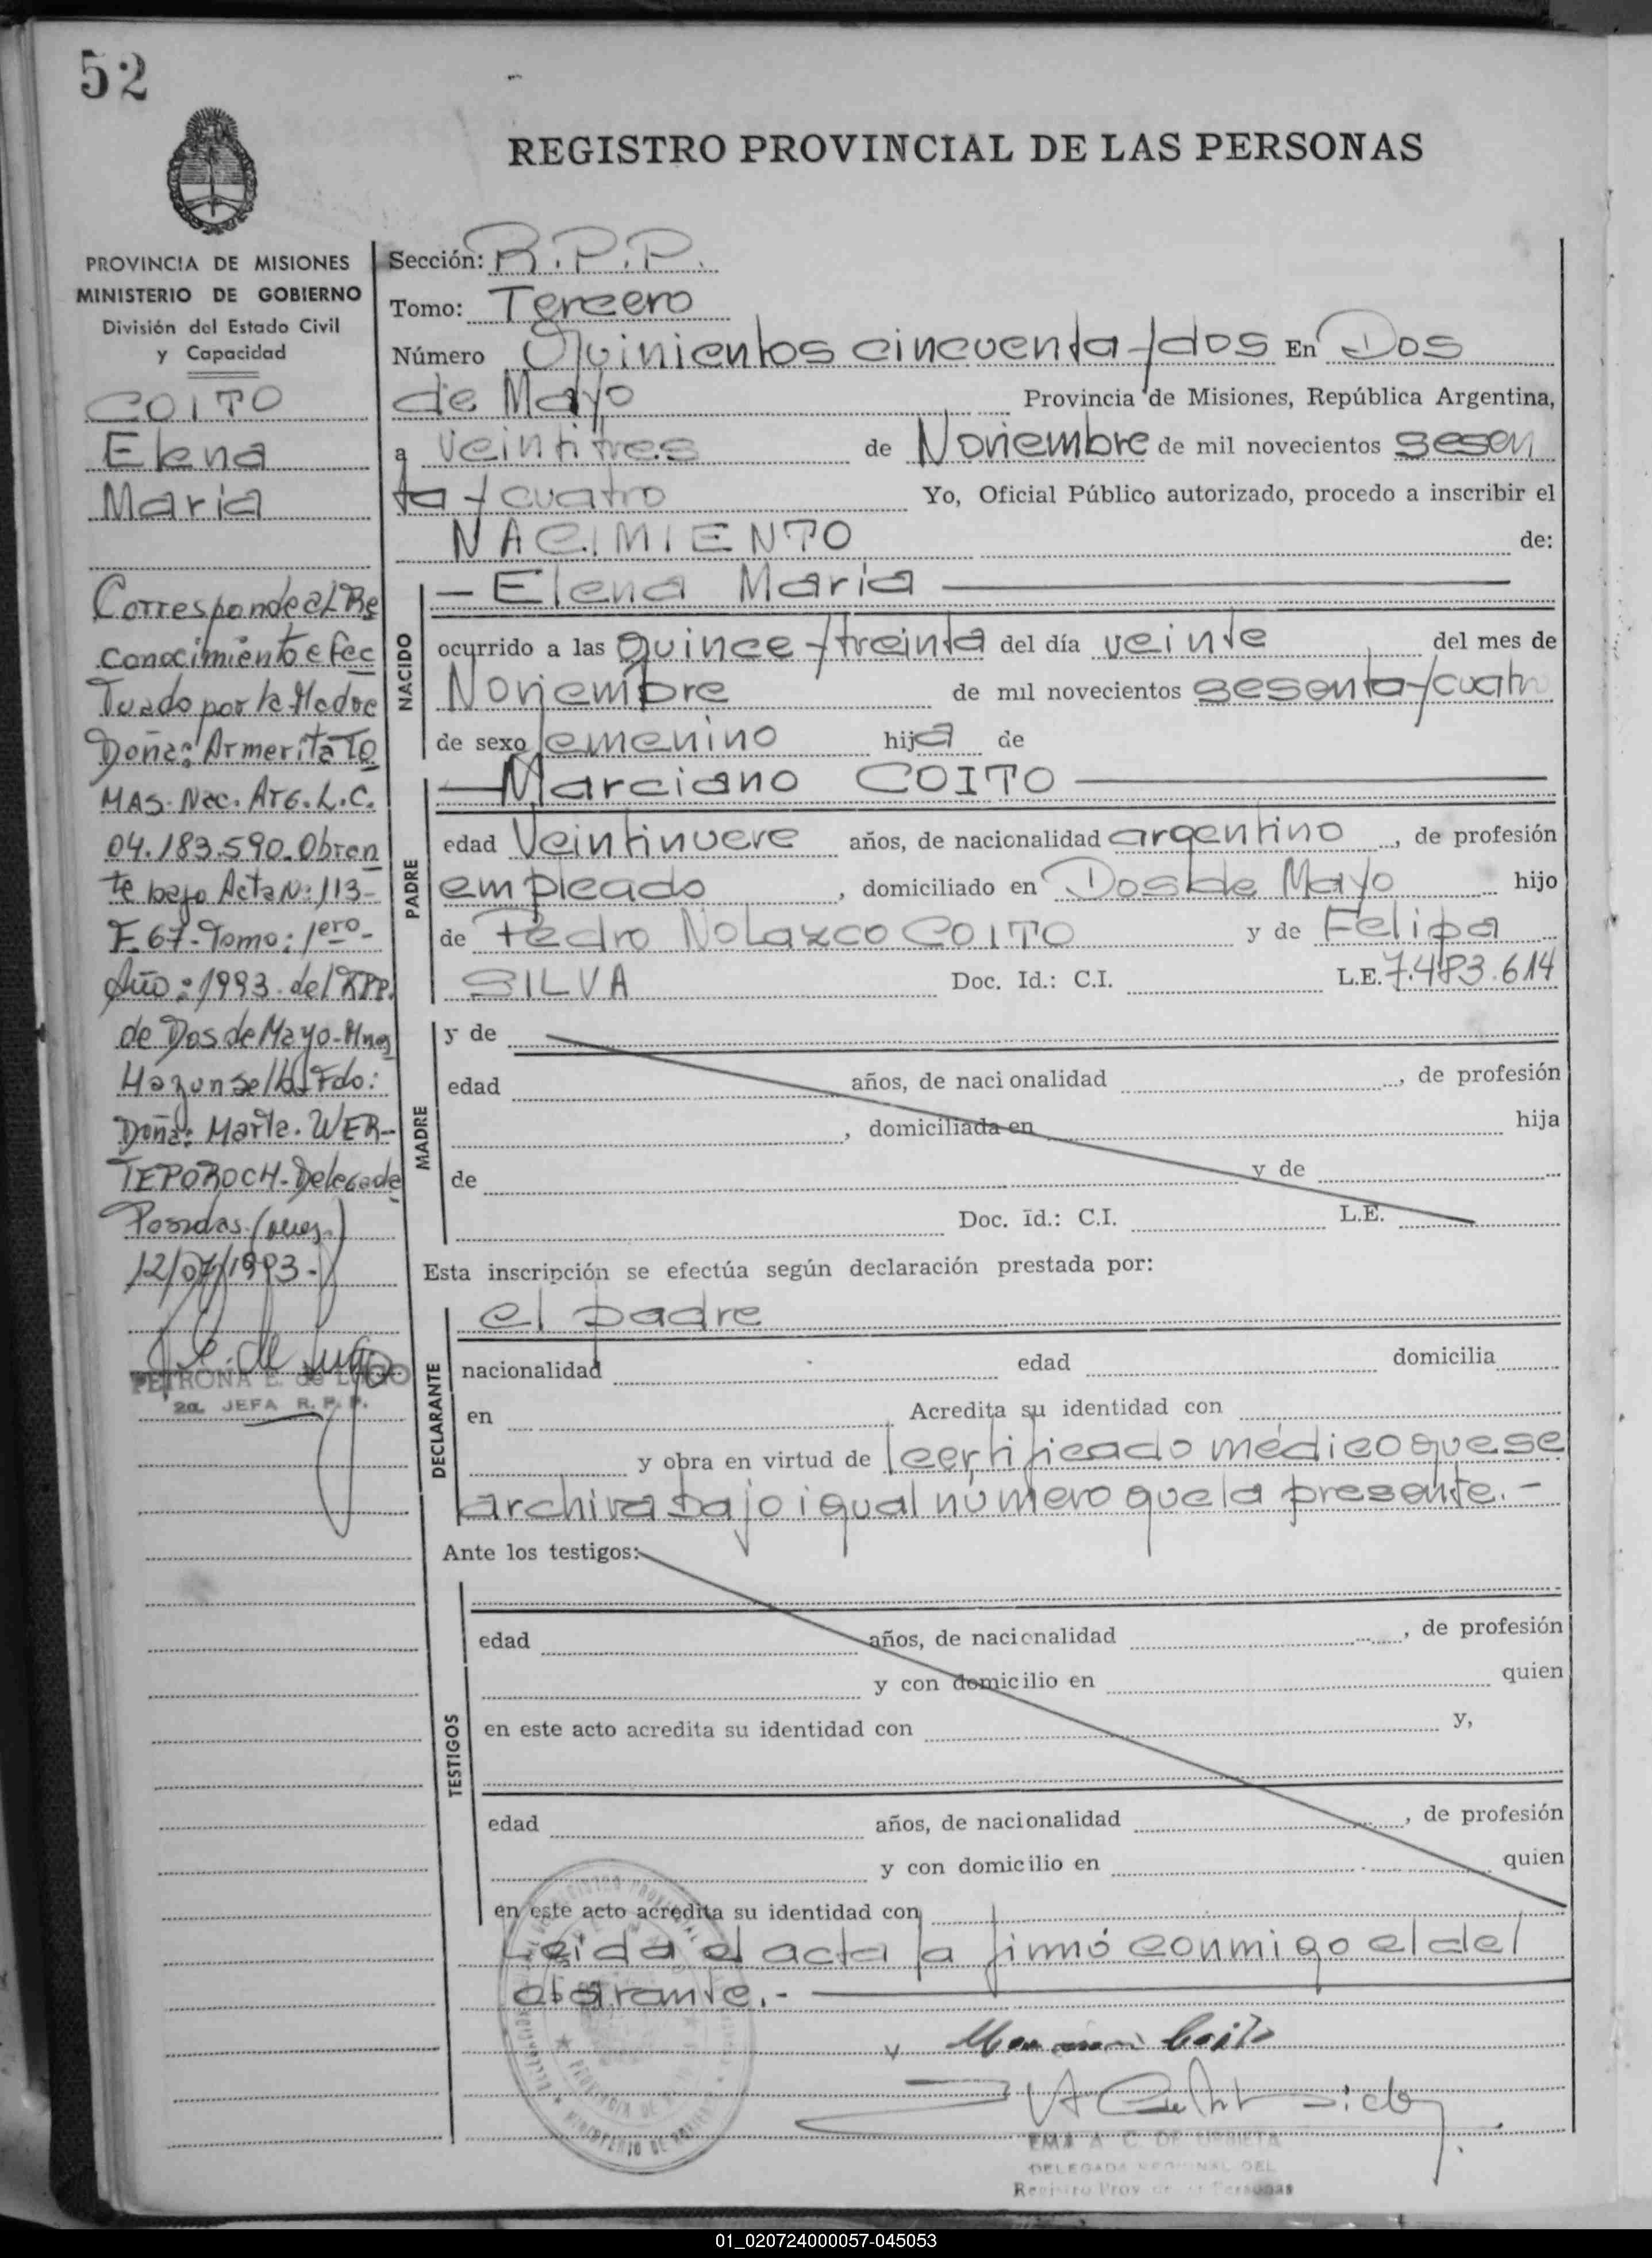 52
REGISTRO PROVINCIAL DE LAS PERSONAS
PROVINCIA DE MISIONES
MINISTERIO DE GOBIERNO
División del Estado Civil
y Capacidad
COITO
Elena
Maria
Corresponde al Re
conocimiento efec
tuado por la Madre
Doña: Armerita TO
MAS. Nac. Arg. L.C.
04.183.590. Obran
te bajo Acta N: 113-
F. 67- Tomo: 1ero-
Año: 1993. del RPP.
de Dos de Mayo-Mnes
Hay un sello Fdo:
Doña: Marta. WER-
TEPOROCH-Delegada
Posadas. (mnes.)
12/07/1993.-
PETRONA E. de LUGO
2a. JEFA R. P. P.
Sección: R.P.P.
Tomo: Tercero
Número Quinientos cincuenta y dos En Dos
de Mayo Provincia de Misiones, República Argentina,
a veintitres de Noviembre de mil novecientos sesen
ta y cuatro Yo, Oficial Público autorizado, procedo a inscribir el
NACIMIENTO de:
NACIDO
— Elena Maria —
ocurrido a las quince y treinta del día veinte del mes de
Noviembre de mil novecientos sesenta y cuatro
de sexo femenino hija de
PADRE
— Marciano COITO —
edad Veintinueve años, de nacionalidad argentino, de profesión
empleado, domiciliado en Dos de Mayo hijo
de Pedro Nolazco COITO y de Felipa
SILVA Doc. Id.: C.I. L.E. 7.483.614
MADRE
y de
edad años, de nacionalidad , de profesión
, domiciliada en hija
de y de
Doc. Id.: C.I. L.E.
Esta inscripción se efectúa según declaración prestada por:
DECLARANTE
el padre
nacionalidad edad domicilia
en Acredita su identidad con
y obra en virtud de certificado médico que se
archiva bajo igual número que la presente.-
Ante los testigos:
TESTIGOS
edad años, de nacionalidad , de profesión
y con domicilio en quien
en este acto acredita su identidad con y,
edad años, de nacionalidad , de profesión
y con domicilio en quien
en este acto acredita su identidad con
Leida el acta la firmó conmigo el del
EMA A C. DE URBIETA
DELEGADA REGIONAL DEL
Registro Prov de las Personas
01_020724000057-045053